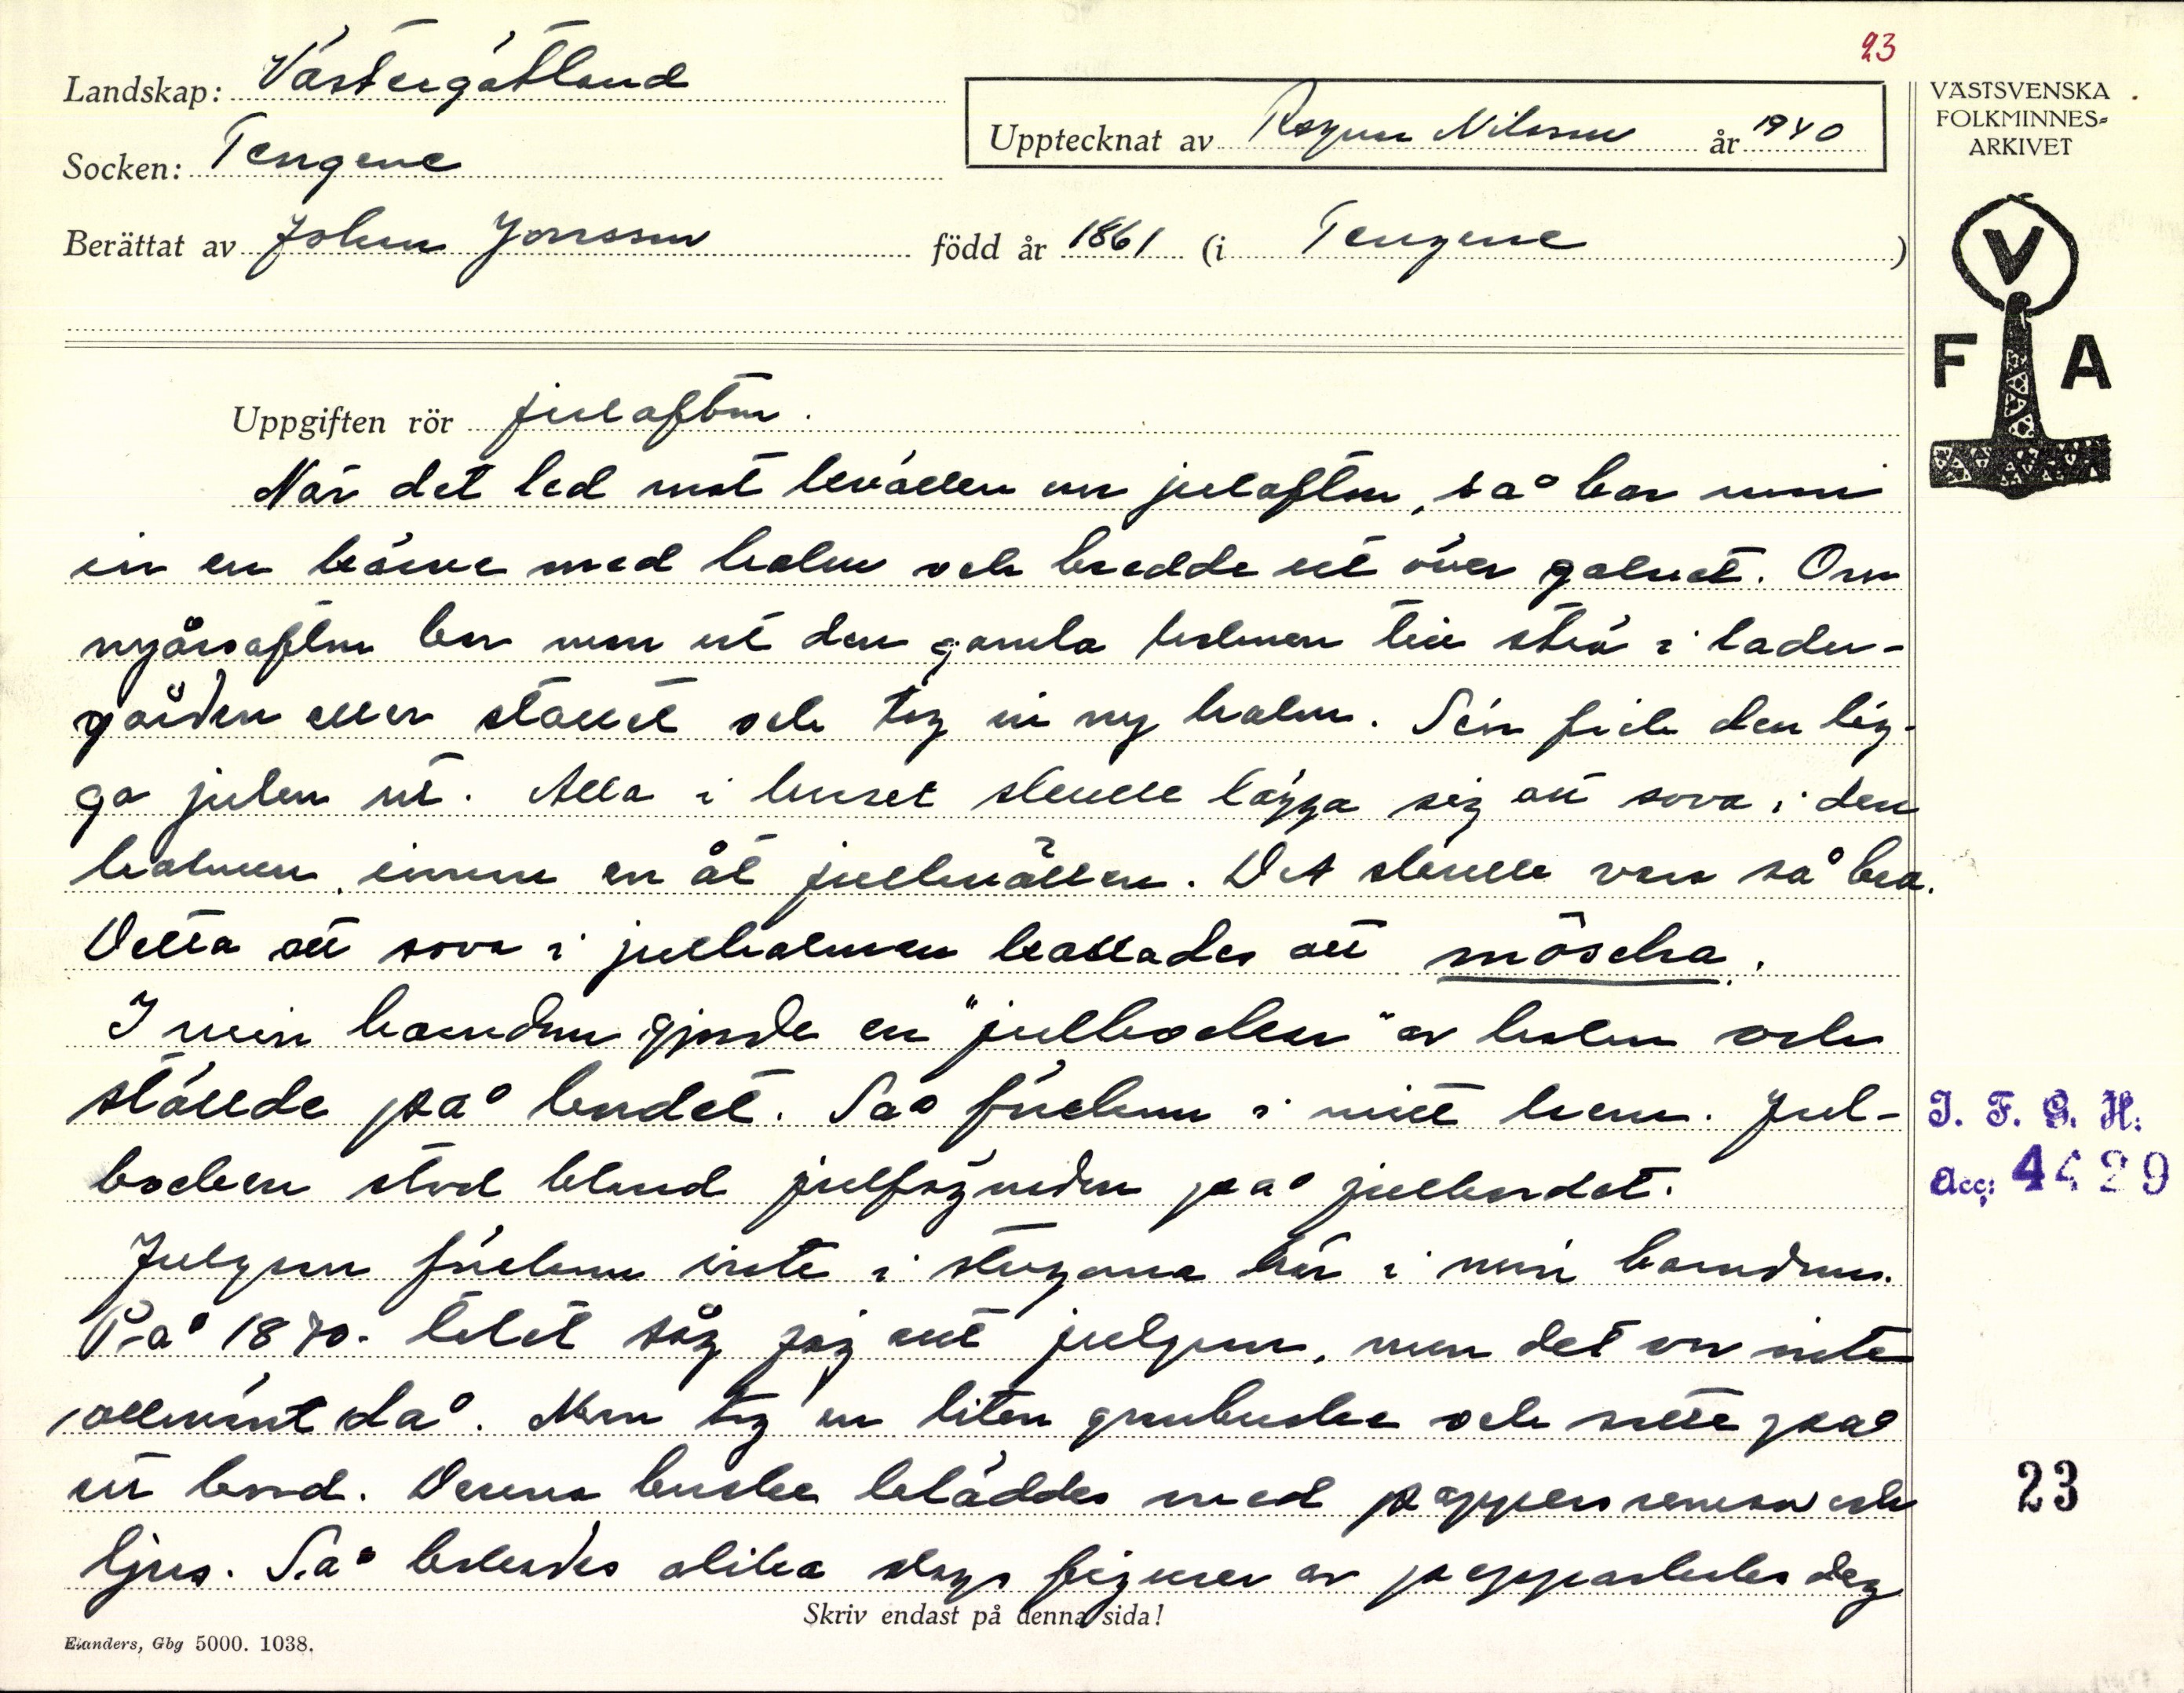 23
Landskap: Västergötland
Upptecknat av Ragnar Nilsson år 1940
VÄSTSVENSKA
FOLKMINNES-
ARKIVET
Socken: Tengene
Berättat av Johan Jonsson född år 1861 (i Tengene)
V
F A
Uppgiften rör julafton.
När det led mot kvällen om julafton, så bar man
in en kärve med halm och bredde ut över golvet. Om
nyårsafton bar man ut den gamla halmen till strö i ladu-
gården eller stallet och tog in ny halm. Sen fick den lig-
ga julen ut. Alla i huset skulle lägga sig att sova i den
halmen, innan en åt julkvällen. Det skulle vara så bra.
Detta att sova i julhalmen kallades att möscha.
I min barndom gjorde en "julbocken" av halm och
ställde på bordet. Så förekom i mitt hem. Jul-
bocken stod bland julfögnaden på julbordet.
Julgran förekom inte i stugorna här i min barndom.
På 1870-talet såg jag ett julgran, men det var inte
allmänt då. Man tog en liten granbuske och satte på
ett bord. Denna buske kläddes med pappersremsor och
ljus. Så bakades olika slags figurer av pepparkaksdeg
Skriv endast på denna sida!
Elanders, Gbg 5000. 1038.
I. F. G. H.
Acc: 4429
23